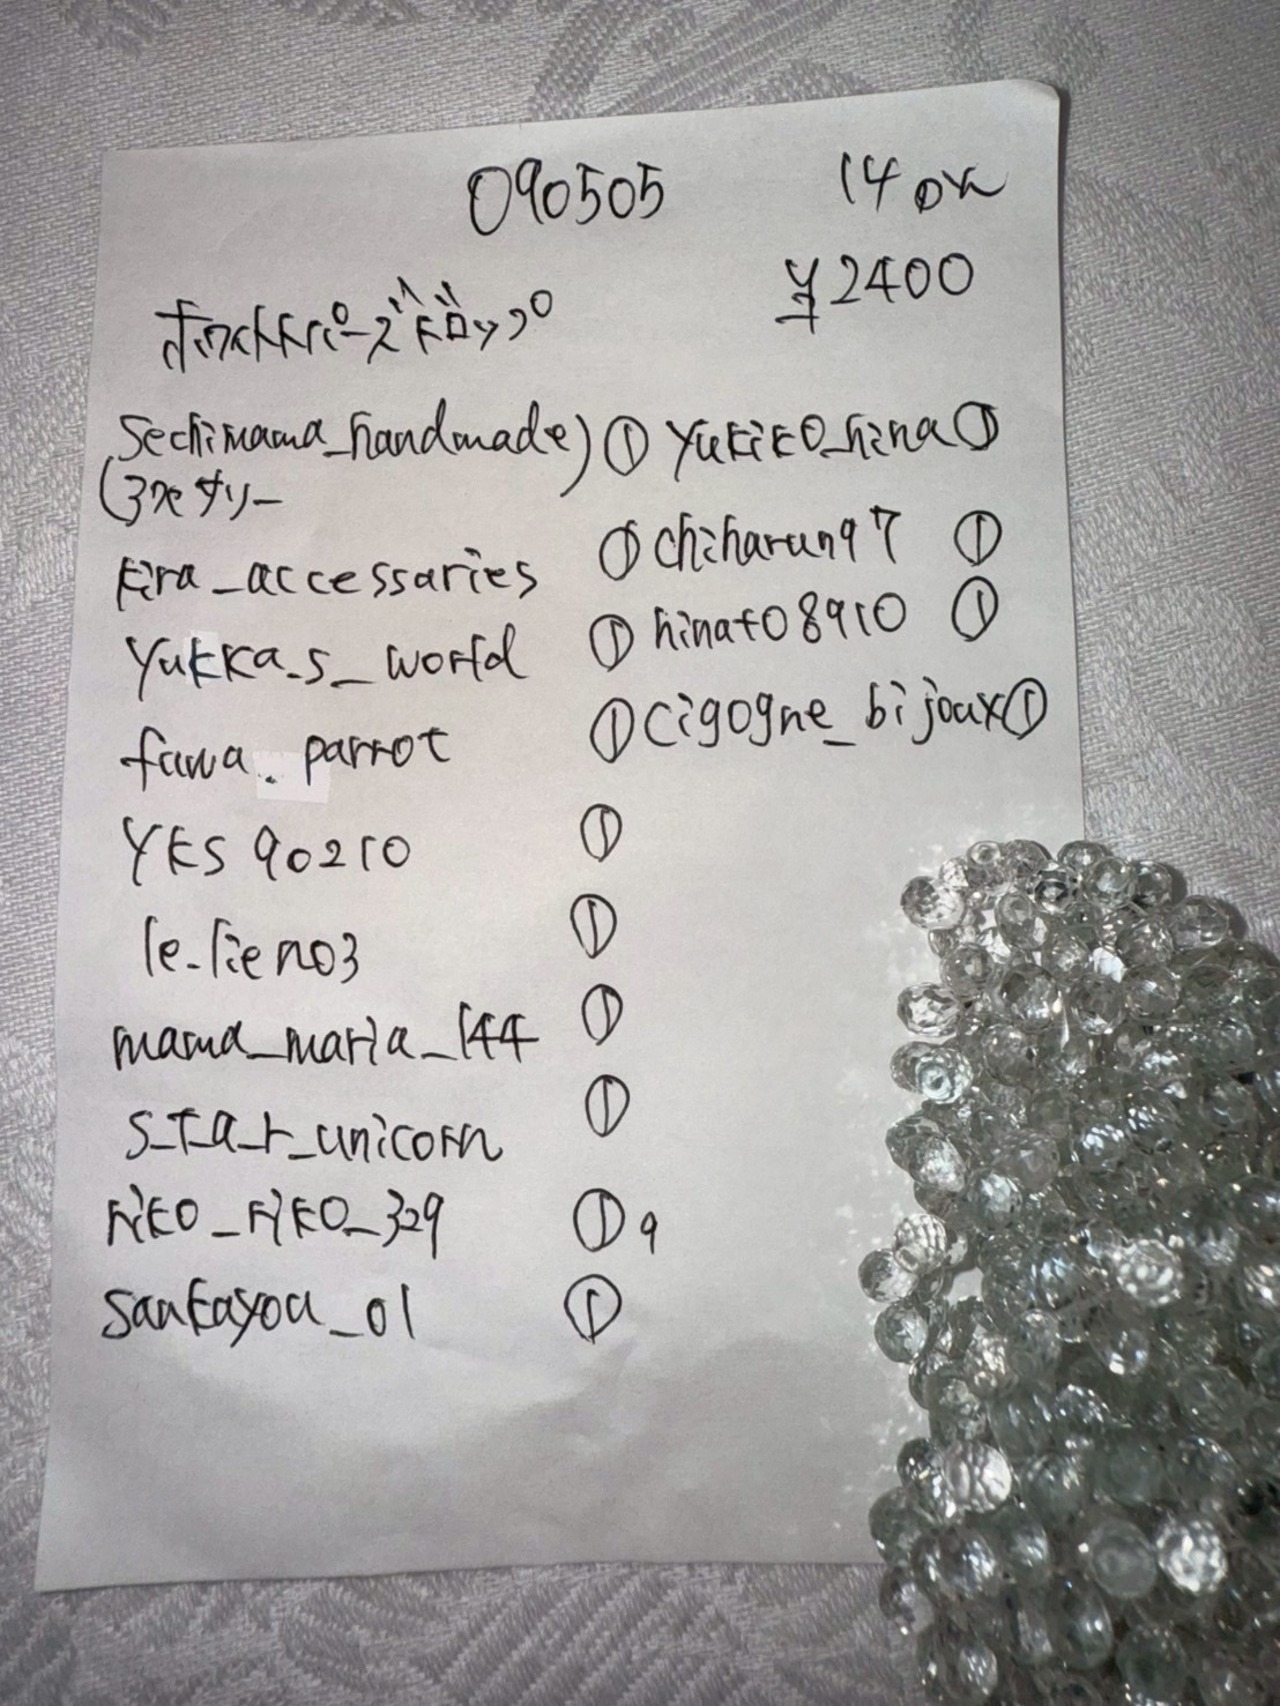 090505 14 pm
¥2400
ホワイトトパーズドロップ
Sechimama_handmade) ① yukiko_hina ①
(アクセサリー
kira_accessaries ① chiharun97 ①
yukka.s_world ① hinato8910 ①
fuwa.parrot ① cigogne_bijoux ①
YKS90210 ①
le.lien03 ①
mama_maria_144 ①
s_t_a_r_unicorn ①
riko_riko_329 ① 9
sankayou_01 ①